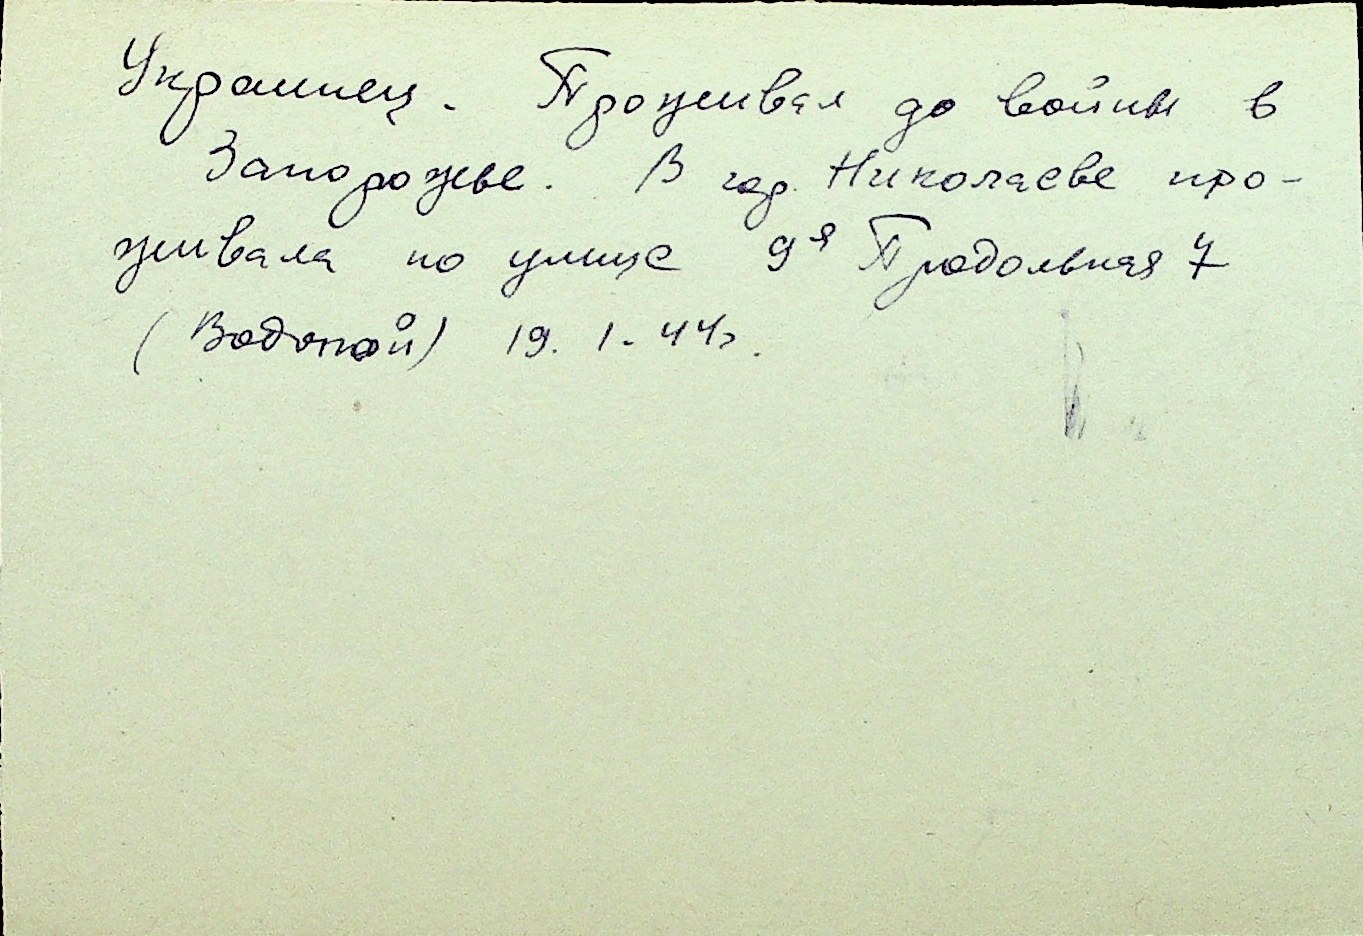 Украинец. Проживал до войны в
Запорожье. В гор. Николаеве про-
живала по улице 9я Продольная 7
(Водопой) 19.1.44г.